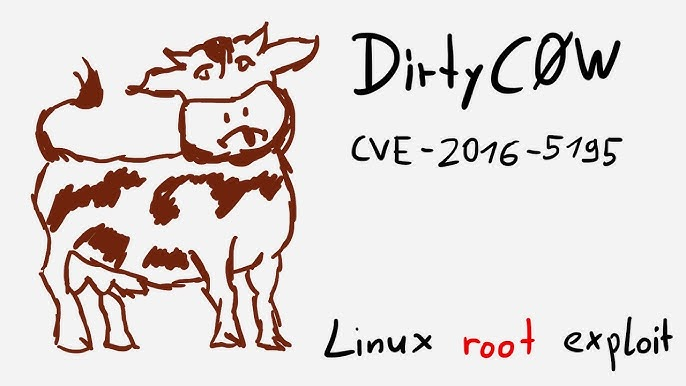 DirtyCØW
CVE-2016-5195
Linux root exploit